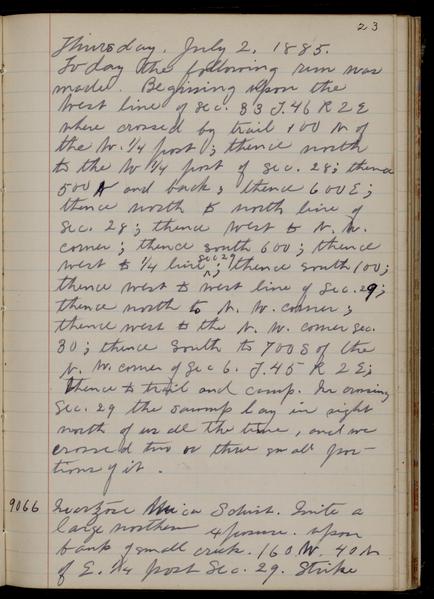 23
Thursday, July 2, 1885.
Today the following run was
made. Beginning upon the
West line of Sec. 33 T. 46 R 2 E
where crossed by trail 100 N. of
the W. 1/4 post; thence north
to the W 1/4 post of Sec. 28; thence
500 N and back; thence 600 E;
thence north to north line of
Sec. 28; thence West to N. W.
corner; thence south 600; thence
sec 29
west to 1/4 line; thence south 100;
thence west to west line of Sec. 29;
thence north to N. W. corner;
thence west to the N. W. corner Sec.
30; thence South to 700 S of the
N. W. corner of Sec 6. T. 45 R 2 E;
thence to trail and camp. In crossing
Sec. 29 the swamp lay in sight
north of us all the time, and we
crossed two or three small por-
tions of it.
9066 Quartzose Mica Schist. Quite a
large northern exposure upon
bank of small creek. 160 W. 40 N
of E. 1/4 post Sec. 29. Strike